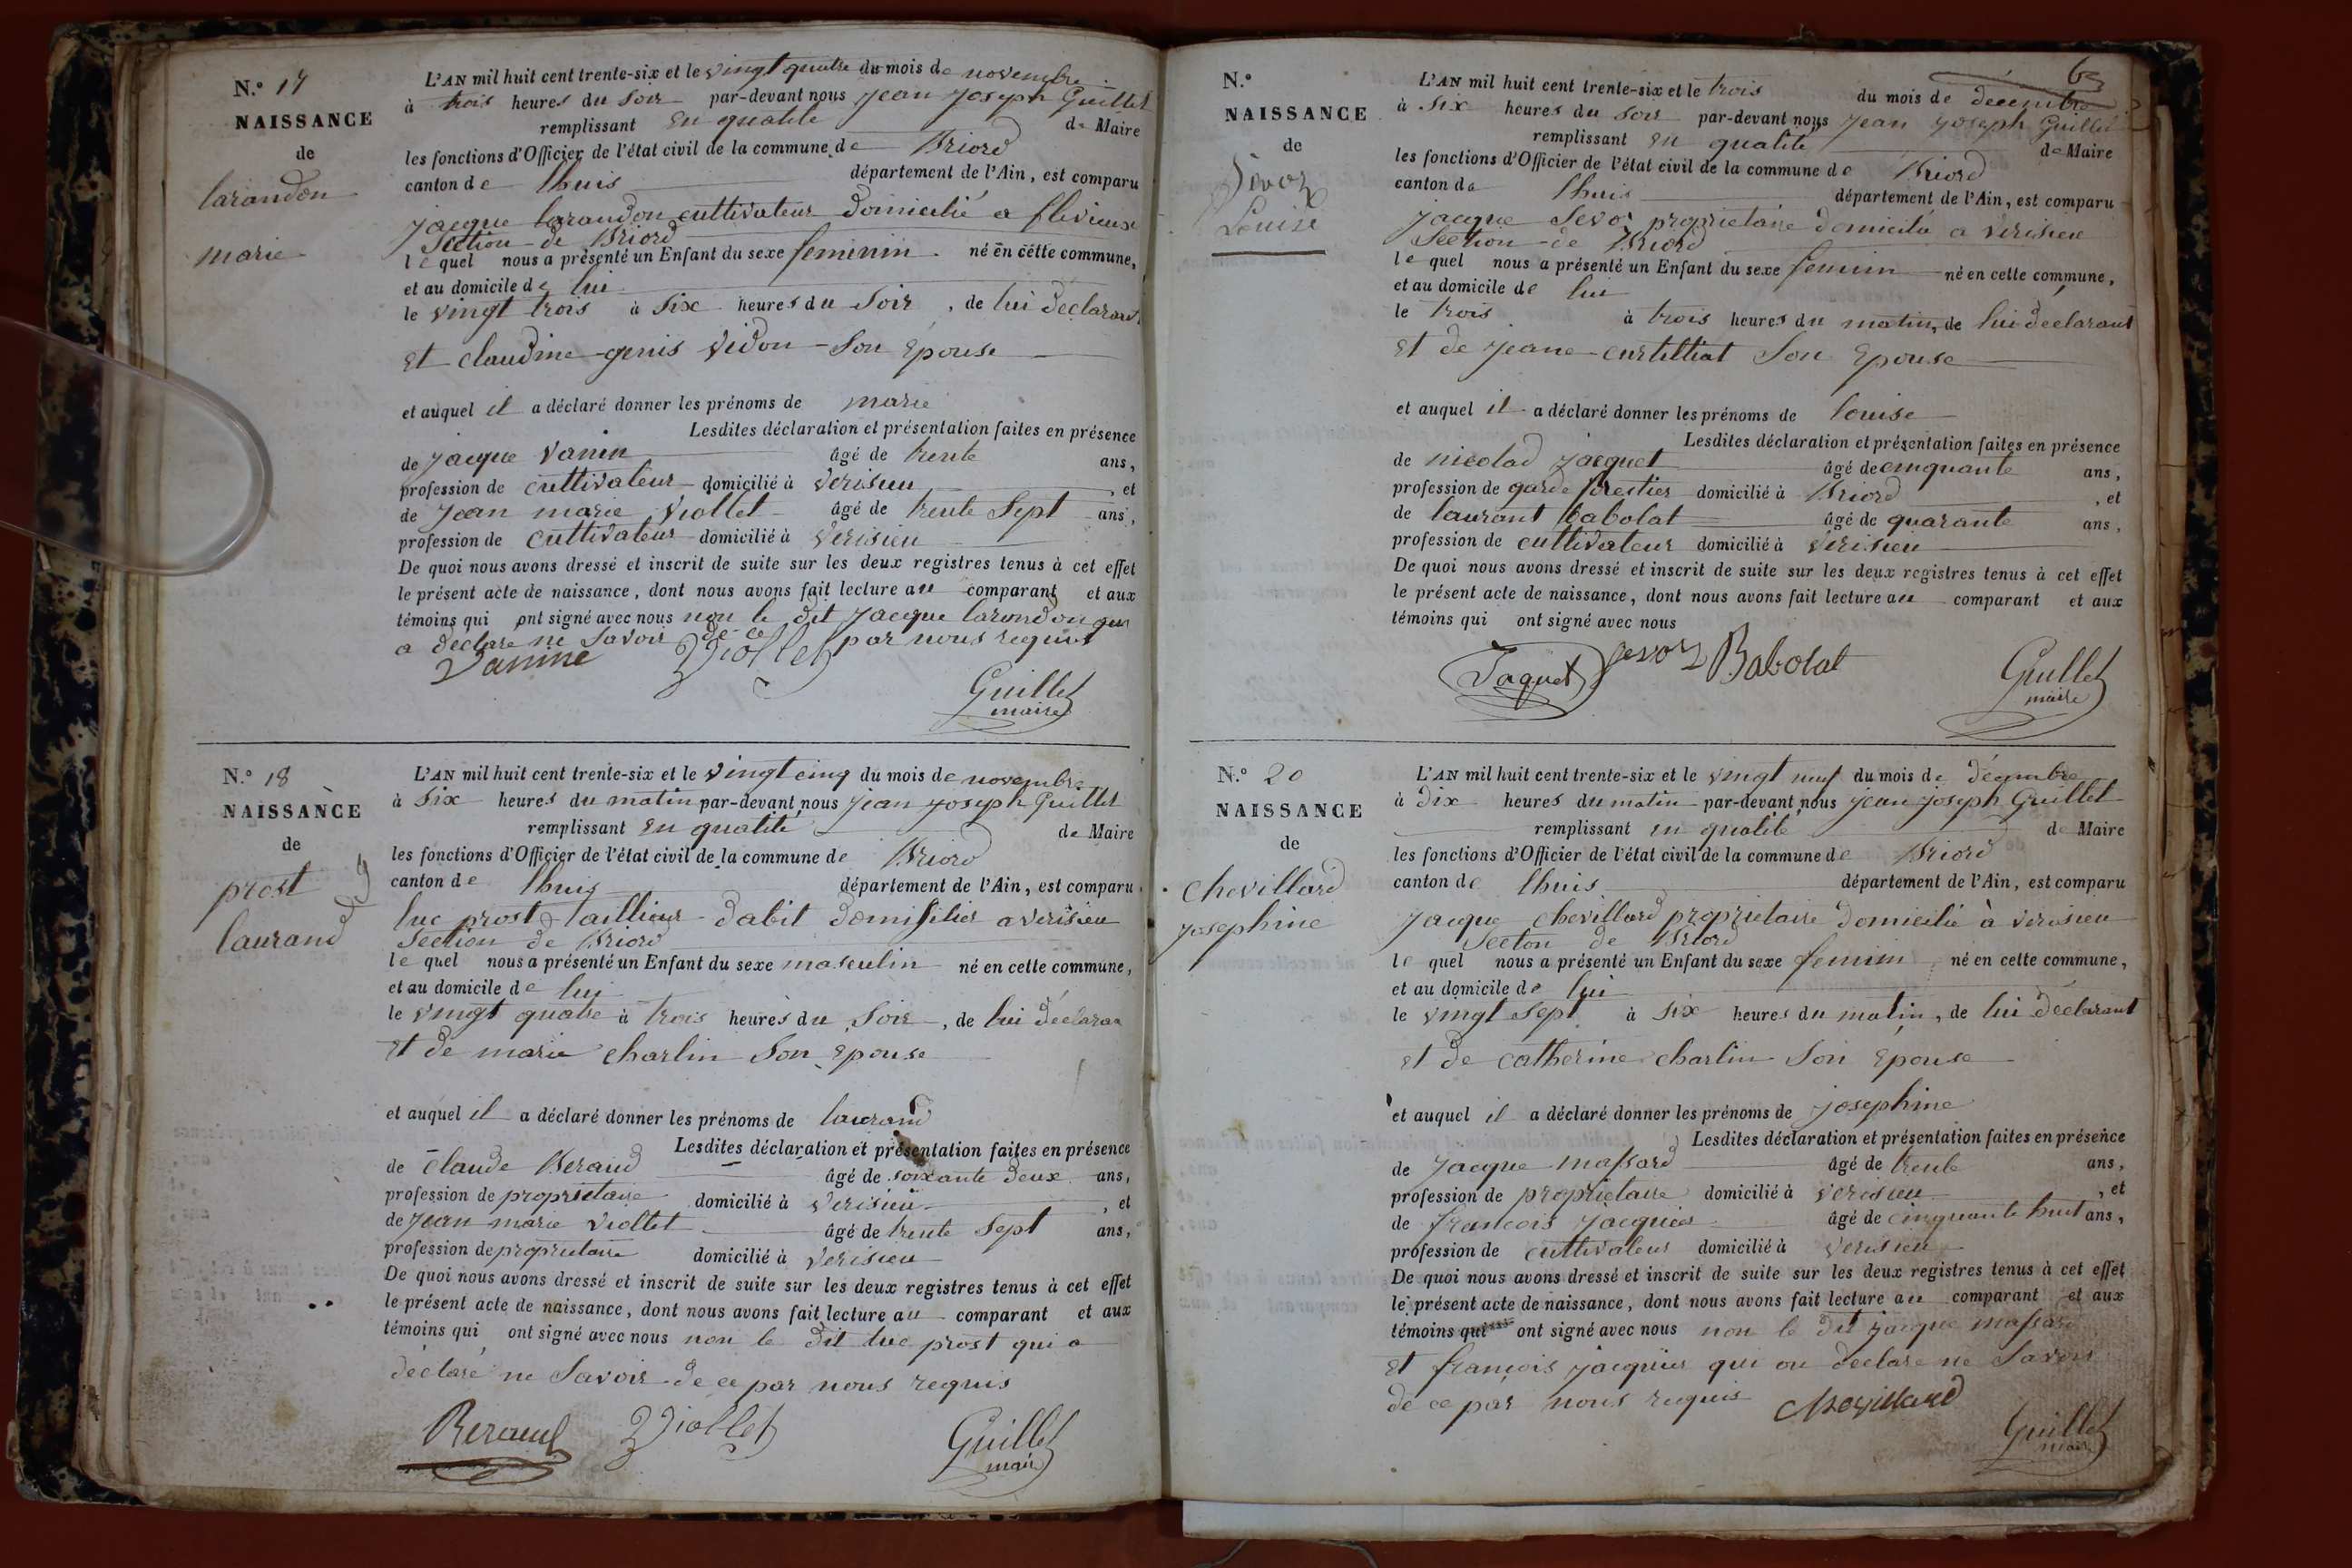 N.° 17
NAISSANCE
de
larandon
marie
L'AN mil huit cent trente-six et le vingt quatre du mois de novembre
à trois heures du soir par-devant nous jean joseph Guillet
remplissant en qualité de Maire
les fonctions d'Officier de l'état civil de la commune de Briord
canton de lhuis département de l'Ain, est comparu
jacque larandon cultivateur domicilié a flevieux
Section de Briord
lequel nous a présenté un Enfant du sexe feminin né en cette commune,
et au domicile de lui
le vingt trois à six heures du soir, de lui déclarant
et claudine genis vidon son épouse
et auquel il a déclaré donner les prénoms de marie
Lesdites déclaration et présentation faites en présence
de jacque vanin âgé de trente ans,
profession de cultivateur domicilié à verisieu, et
de jean marie viollet âgé de trente sept ans,
profession de cultivateur domicilié à verisieu
De quoi nous avons dressé et inscrit de suite sur les deux registres tenus à cet effet
le présent acte de naissance, dont nous avons fait lecture au comparant et aux
témoins qui ont signé avec nous non le dit jacque larondon qui
a déclare ne savoir de ce par nous requis
Vanine Viollet
Guillet
maire
N.° 18
NAISSANCE
de
prost
laurand
L'AN mil huit cent trente-six et le vingt cinq du mois de novembre
à six heures du matin par-devant nous jean joseph Guillet
remplissant en qualité de Maire
les fonctions d'Officier de l'état civil de la commune de Briord
canton de lhuis département de l'Ain, est comparu
luc prost taillieur dabit domisilier a verisieu
Section de Briord
lequel nous a présenté un Enfant du sexe masculin né en cette commune,
et au domicile de lui
le vingt quatre à trois heures du soir, de lui déclaran
et de marie charlin son epouse
et auquel il a déclaré donner les prénoms de laurand
Lesdites déclaration et présentation faites en présence
de claude Beraud âgé de soixante deux ans,
profession de proprietaire domicilié à verisieu, et
de jean marie viollet âgé de trente sept ans,
profession de proprietaire domicilié à verisieu
De quoi nous avons dressé et inscrit de suite sur les deux registres tenus à cet effet
le présent acte de naissance, dont nous avons fait lecture au comparant et aux
témoins qui ont signé avec nous non le dit luc prost qui a
déclaré ne savoir de ce par nous requis
Beraud Viollet Guillet
maire
63
N.°
NAISSANCE
de
Sevoz
Louise
L'AN mil huit cent trente-six et le trois du mois de decembre
à six heures du soir par-devant nous jean joseph Guillet
remplissant en qualité de Maire
les fonctions d'Officier de l'état civil de la commune de Briord
canton de lhuis département de l'Ain, est comparu
jacque Sevoz proprietaire domicilié a verisieu
Section de Briord
lequel nous a présenté un Enfant du sexe feminin né en cette commune,
et au domicile de lui
le trois à trois heures du matin, de lui déclarant
et de jeane curtilliat son epouse
et auquel il a déclaré donner les prénoms de louise
Lesdites déclaration et présentation faites en présence
de nicolad jacquet âgé de cinquante ans,
profession de garde forestier domicilié à Briord, et
de laurant babolat âgé de quarante ans,
profession de cultivateur domicilié à verisieu
De quoi nous avons dressé et inscrit de suite sur les deux registres tenus à cet effet
le présent acte de naissance, dont nous avons fait lecture au comparant et aux
témoins qui ont signé avec nous
Jaquet sevoz Babolat Guillet
maire
N.° 20
NAISSANCE
de
chevillard
josephine
L'AN mil huit cent trente-six et le vingt neuf du mois de décembre
à dix heures du matin par-devant nous jean joseph Guillet
remplissant en qualité de Maire
les fonctions d'Officier de l'état civil de la commune de Briord
canton de lhuis département de l'Ain, est comparu
jacque chevillard proprietaire domicilié à verisieu
Secton de Briord
lequel nous a présenté un Enfant du sexe feminin né en cette commune,
et au domicile de lui
le vingt sept à six heures du matin, de lui déclarant
et de catherine charlin son epouse
et auquel il a déclaré donner les prénoms de josephine
Lesdites déclaration et présentation faites en présence
de jacque massard âgé de trente ans,
profession de proprietaire domicilié à verisieu, et
de francois jacquier âgé de cinquante huit ans,
profession de cultivateur domicilié à verisieu
De quoi nous avons dressé et inscrit de suite sur les deux registres tenus à cet effet
le présent acte de naissance, dont nous avons fait lecture au comparant et aux
témoins qui ont signé avec nous non le dit jacque massard
et françois jacquier qui on declare ne savoir
de ce par nous requis chevillard
Guillet
maire